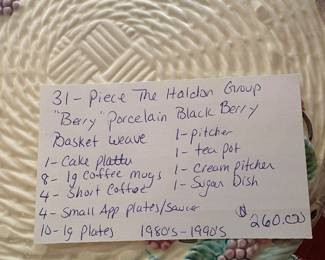 31 - Piece The Haldon Group
"Berry" Porcelain Black Berry
Basket weave
1 - Cake platter
8 - lg coffee mugs
4 - Short Coffee
4 - Small App plates/saucer
10 - lg plates 1980's - 1990's
1 - pitcher
1 - tea pot
1 - Cream pitcher
1 - Sugar Dish
$260.00